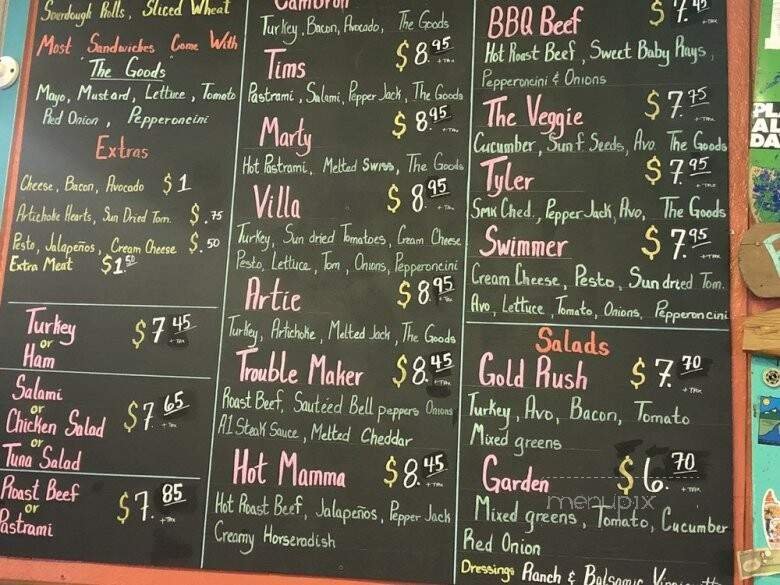 Sourdough Rolls, Sliced Wheat
Most Sandwiches Come With
"The Goods"
Mayo, Mustard, Lettuce, Tomato
Red Onion, Pepperoncini
Extras
Cheese, Bacon, Avocado $1
Artichoke Hearts, Sun Dried Tom. $.75
Pesto, Jalapeños, Cream Cheese $.50
Extra Meat $1.50
Turkey
or
Ham
$7.45
+TAX
Salami
or
Chicken Salad
or
Tuna Salad
$7.65
+TAX
Roast Beef
or
Pastrami
$7.85
+TAX
Cameron
Turkey, Bacon, Avocado, The Goods
Tims $8.95
+TAX
Pastrami, Salami, Pepper Jack, The Goods
Marty $8.95
+TAX
Hot Pastrami, Melted Swiss, The Goods
Villa $8.95
+TAX
Turkey, Sun dried Tomatoes, Cream Cheese
Pesto, Lettuce, Tom, Onions, Pepperoncini
Artie $8.95
+TAX
Turkey, Artichoke, Melted Jack, The Goods
Trouble Maker $8.45
+TAX
Roast Beef, Sautéed Bell peppers Onions
A1 Steak Sauce, Melted Cheddar
Hot Mamma $8.45
+TAX
Hot Roast Beef, Jalapeños, Pepper Jack
Creamy Horseradish
BBQ Beef $7.45
+TAX
Hot Roast Beef, Sweet Baby Rays,
Pepperoncini & Onions
The Veggie $7.75
+TAX
Cucumber, Sunf. Seeds, Avo. The Goods
Tyler $7.95
+TAX
Smk Ched., Pepper Jack, Avo, The Goods
Swimmer $7.95
+TAX
Cream Cheese, Pesto, Sundried Tom.
Avo, Lettuce, Tomato, Onions, Pepperoncini
Salads
Gold Rush $7.70
+TAX
Turkey, Avo, Bacon, Tomato
Mixed greens
Garden $6.70
+TAX
menupix
Mixed greens, Tomato, Cucumber
Red Onion
Dressings Ranch & Balsamic